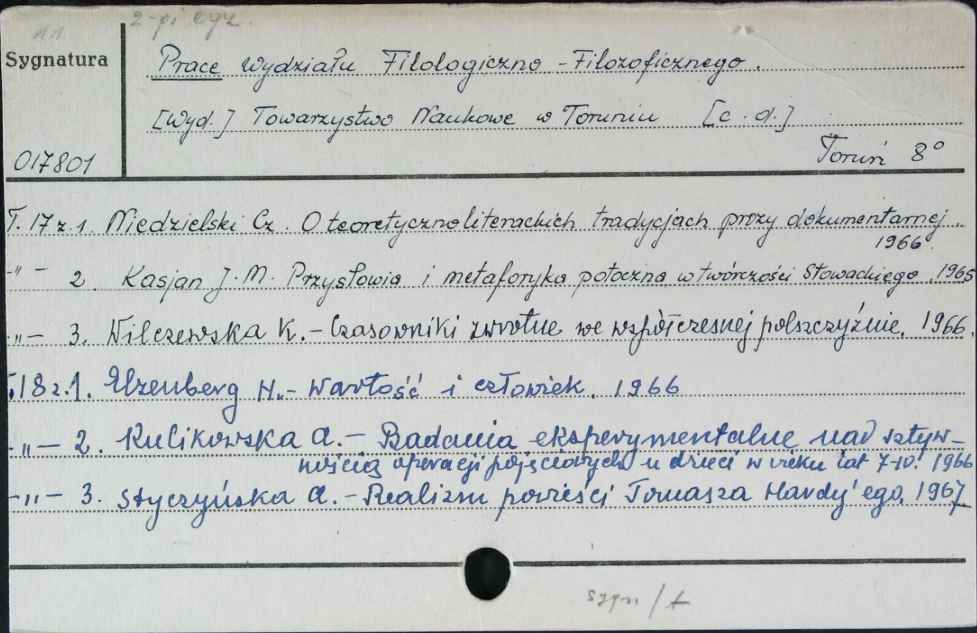 11 2-pi egz.
Sygnatura
Prace Wydziału Filologiczno-Filozoficznego.
[Wyd.] Towarzystwo Naukowe w Toruniu [c.d.]
017801 Toruń 8°
T. 17 z. 1. Niedzielski Cz. O teoretycznoliterackich tradycjach prozy dokumentarnej.
1966
-"- 2. Kasjan J.M. Przysłowia i metaforyka potoczna w twórczości Słowackiego. 1965
-"- 3. Wilczewska K. - Czasowniki zwrotne we współczesnej polszczyźnie. 1966
T. 18 z. 1. Elzenberg H. - Wartość i człowiek. 1966
-"- 2. Kulikowska A. - Badania eksperymentalne nad sztyw-
nością operacji pojęciowych u dzieci w wieku lat 7-10. 1966
-"- 3. Styczyńska A. - Realizm powieści Tomasza Hardy'ego. 1967
sygn / t